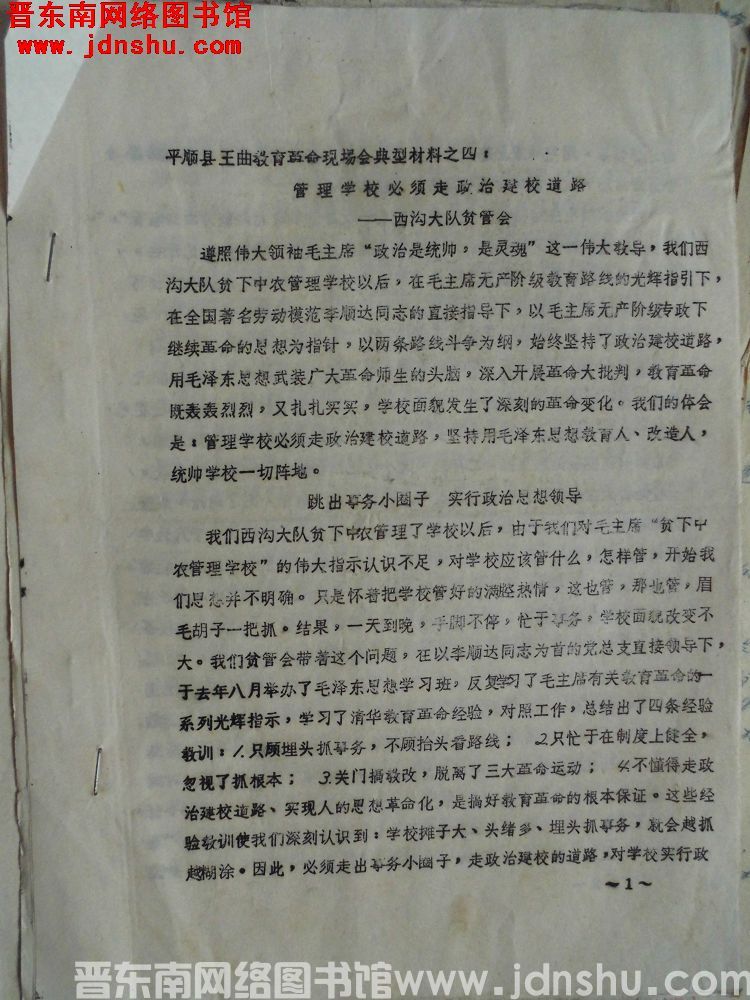 晋东南网络图书馆
www.jdnshu.com
平顺县王曲教育革命现场会典型材料之四：
管理学校必须走政治建校道路
——西沟大队贫管会
遵照伟大领袖毛主席“政治是统帅，是灵魂”这一伟大教导，我们西
沟大队贫下中农管理学校以后，在毛主席无产阶级教育路线的光辉指引下，
在全国著名劳动模范李顺达同志的直接指导下，以毛主席无产阶级专政下
继续革命的思想为指针，以两条路线斗争为纲，始终坚持了政治建校道路，
用毛泽东思想武装广大革命师生的头脑，深入开展革命大批判，教育革命
既轰轰烈烈，又扎扎实实，学校面貌发生了深刻的革命变化。我们的体会
是：管理学校必须走政治建校道路，坚持用毛泽东思想教育人、改造人，
统帅学校一切阵地。
跳出事务小圈子 实行政治思想领导
我们西沟大队贫下中农管理了学校以后，由于我们对毛主席“贫下中
农管理学校”的伟大指示认识不足，对学校应该管什么，怎样管，开始我
们思想并不明确。只是怀着把学校管好的满腔热情，这也管，那也管，眉
毛胡子一把抓。结果，一天到晚，手脚不停，忙于事务，学校面貌改变不
大。我们贫管会带着这个问题，在以李顺达同志为首的党总支直接领导下，
于去年八月举办了毛泽东思想学习班，反复学习了毛主席有关教育革命的一
系列光辉指示，学习了清华教育革命经验，对照工作，总结出了四条经验
教训：1.只顾埋头抓事务，不顾抬头看路线； 2.只忙于在制度上健全，
忽视了抓根本； 3.关门搞教改，脱离了三大革命运动； 4.不懂得走政
治建校道路、实现人的思想革命化，是搞好教育革命的根本保证。这些经
验教训使我们深刻认识到：学校摊子大、头绪多、埋头抓事务，就会越抓
越糊涂。因此，必须走出事务小圈子，走政治建校的道路，对学校实行政
～1～
晋东南网络图书馆www.jdnshu.com